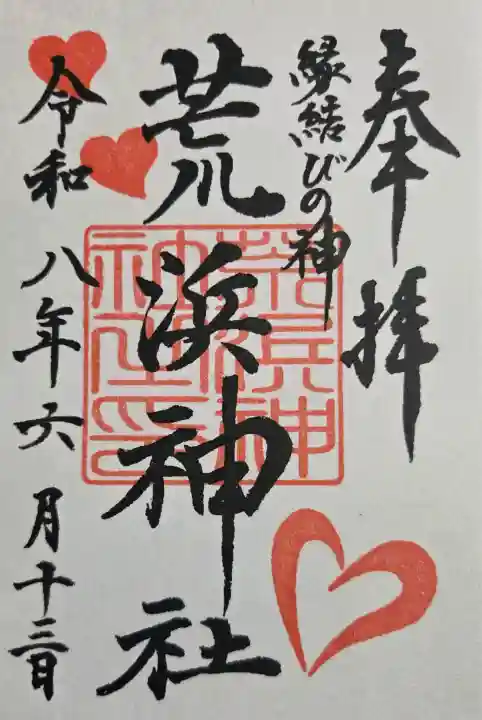 奉拝
縁結びの神
荒浜神社
荒浜神社之印
令和八年六月十三日